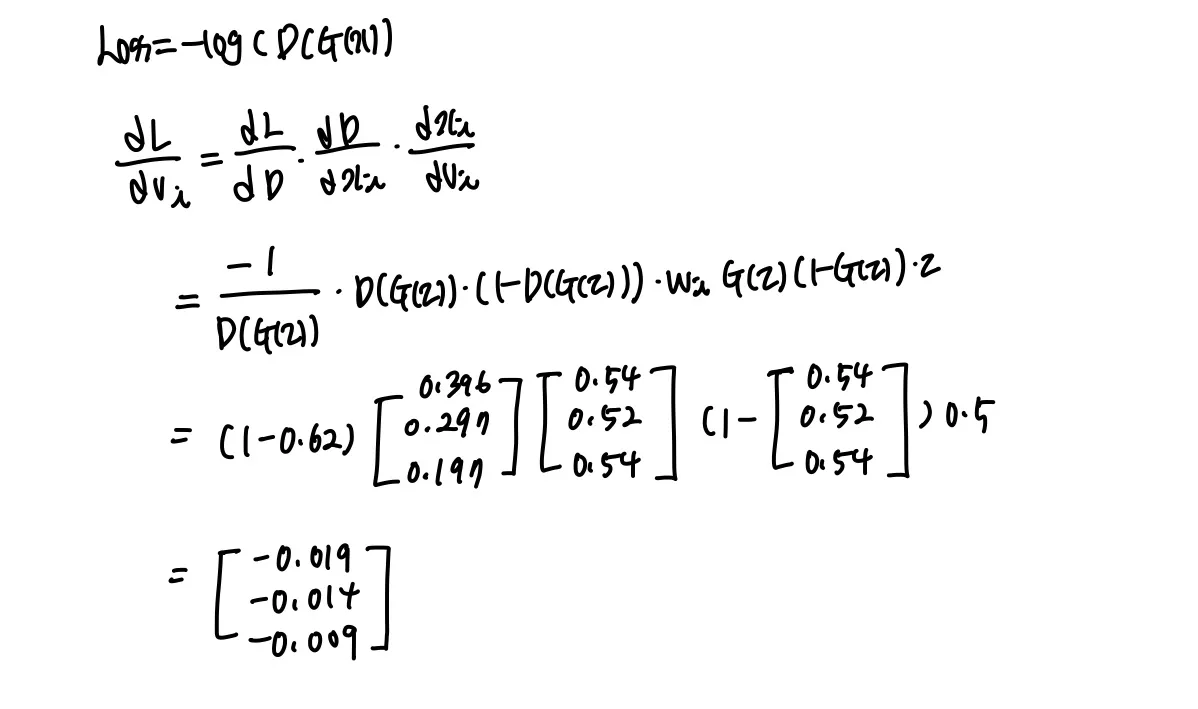 Loss = -log ( D(G(x))
dL/dv_i = dL/dD · dD/dx_i · dx_i/dv_i
= -1/D(G(z)) · D(G(z)) · (1-D(G(z))) · w_i G(z)(1-G(z)) · z
= (1-0.62) [0.396 0.297 0.197] [0.54 0.52 0.54] (1- [0.54 0.52 0.54] ) 0.5
= [-0.019 -0.014 -0.009]